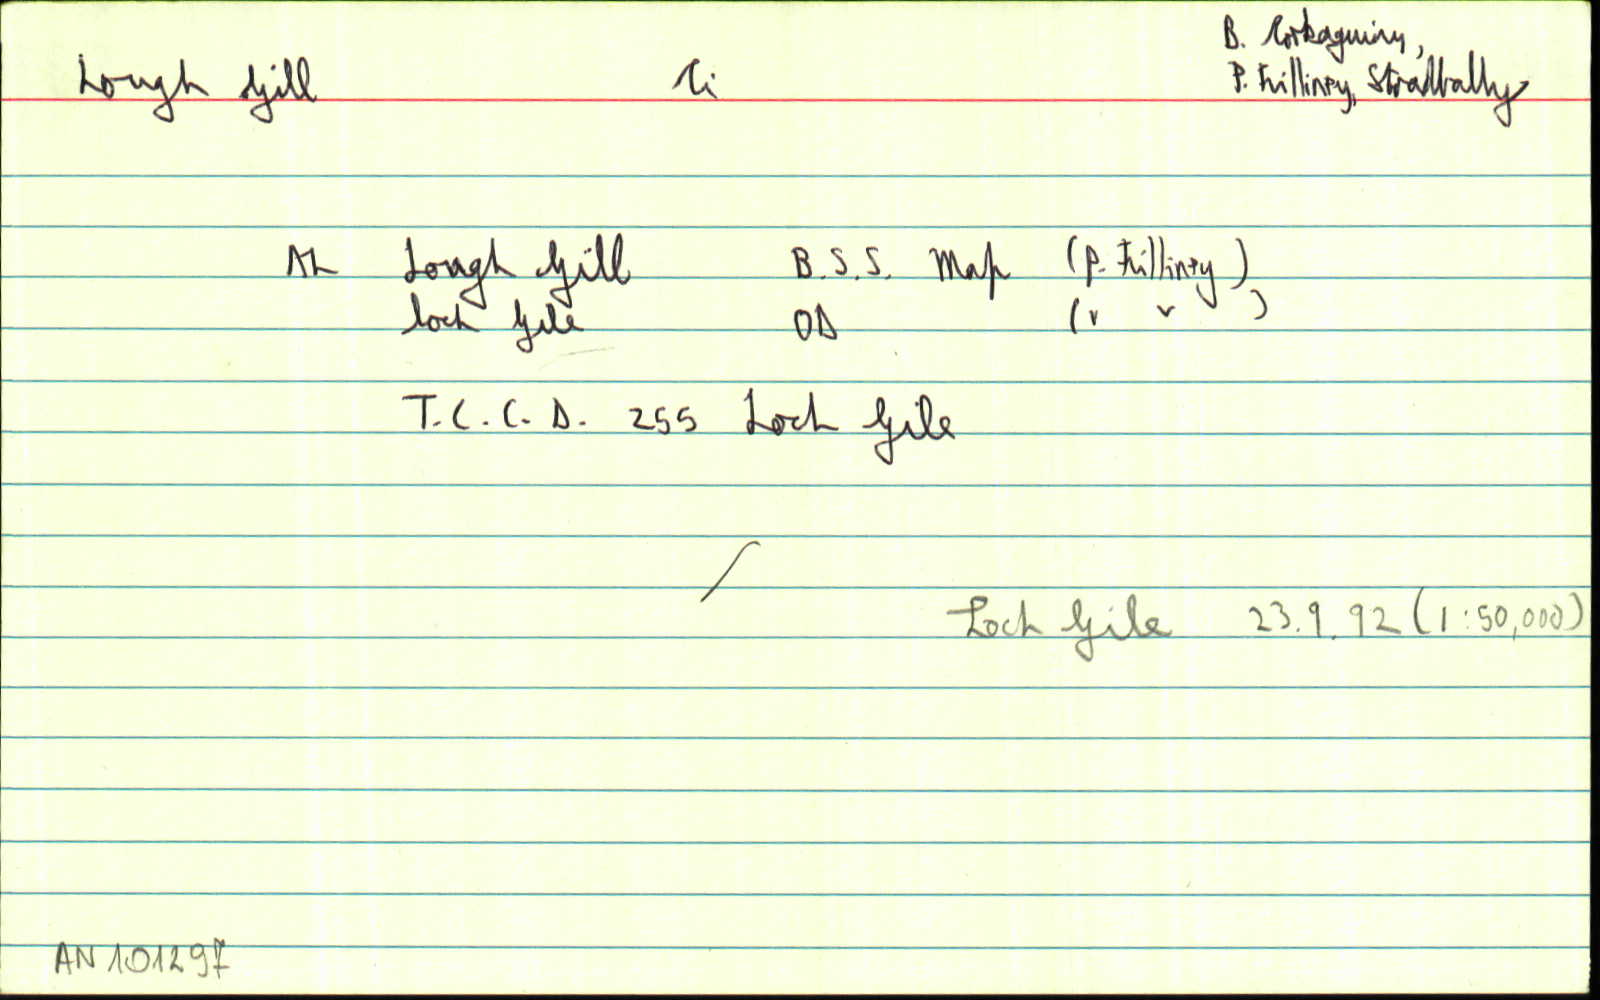 B. Corkaguiny,
Lough Gill Ci P. Killiney, Stradbally
AL Lough Gill B.S.S. Map (P. Killiney)
Loch Gile OD (" " )
T.C.C.D. 255 Loch Gile
Loch Gile 23.9.92 (1:50,000)
AN 101297